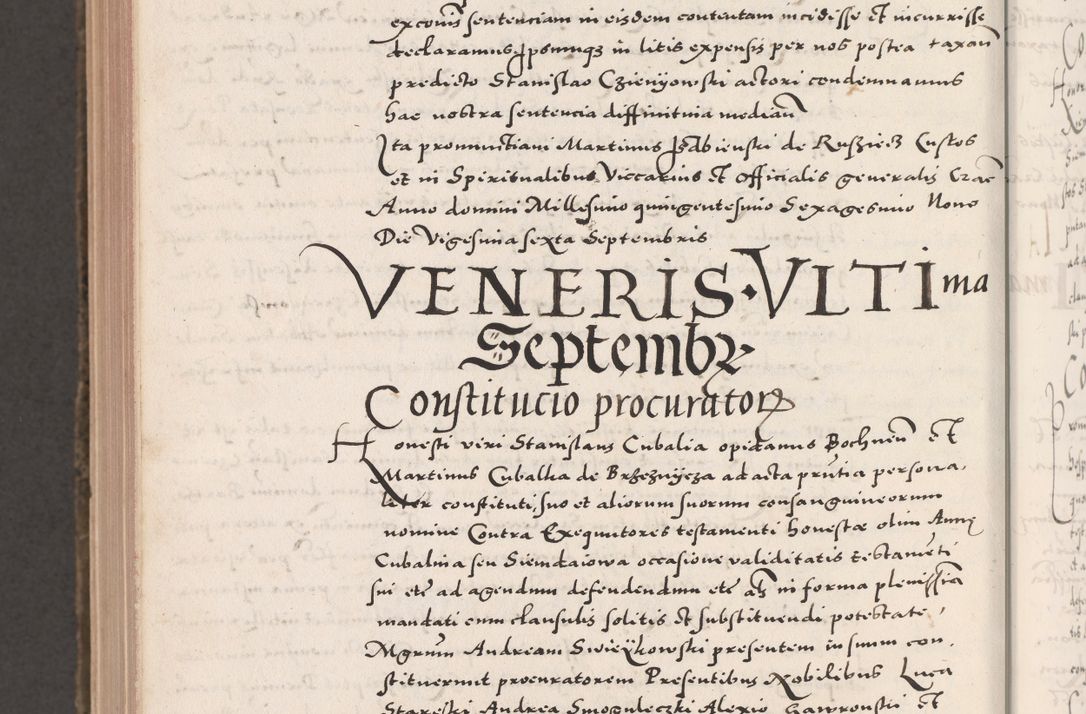 excomis sentenciam in eisdem contentam incidisse et incurrisse
declaramus Ipsumqz in litis expensis per nos postea taxan
predicto Stanislao Czienyowski actori condemnamus
hac nostra sentencia diffinitiva median
Ita pronuntiavi Martinus Izdbienski de Rusziecz Custos
et in Spiritualibus Viccarius et Officialis generalis Crac
Anno domini Millesimo quingentesimo Sexagesimo Nono
Die Vigesima sexta Septembris
VENERIS · VLTIma
Septembr
Constitucio procurator
Honesti viri Stanislaus Cubalia opidanus Bochnen et
Martinus Cubalka de Brzeznycza ad acta prntia persona
liter constituti, suo et aliorum suorum consanguineorum
nomine Contra Exequutores testamenti honestæ olim Annę
Cubalina seu Siemdaiowa occasione validitatis testamēti
sui etc ad agendum defendendum etc als in forma plenissia
mandati cum clausulis solitis et substituendi potestate,
Mgrum Andream Swieykowski presentem in suum con
stituerunt procuratorem Presentibus Nobilibus Luca
Stareski Andrea Smoguleczki Alexio Gawronski et